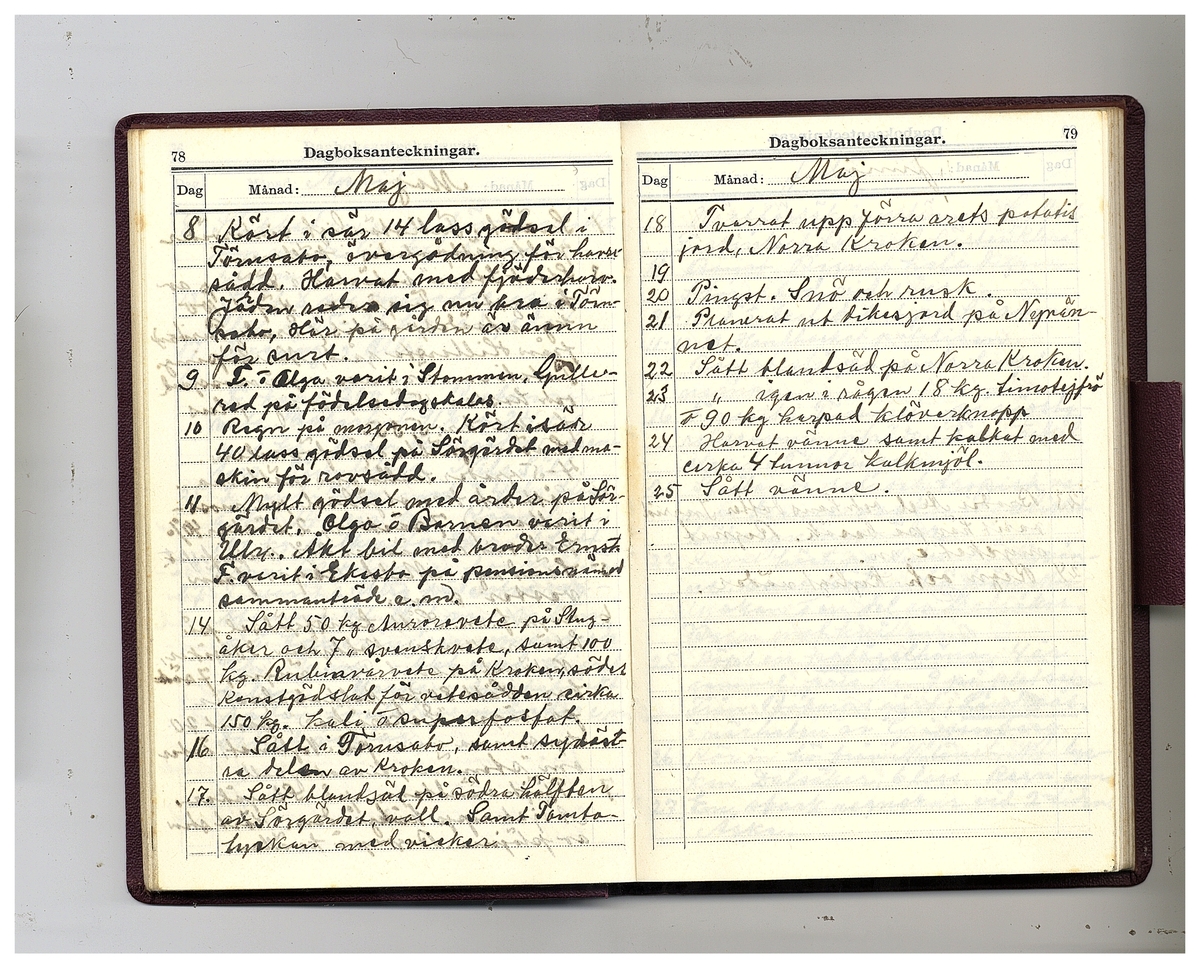 78
Dagboksanteckningar.
Dag Månad: Maj
8 Kört i sär 14 lass gödsel i
Törnsabo, övergödning för havre-
sådd. Harvat med fjäderharv.
Jorden reder sig nu bra i Törn-
sabo, här på gården är ännu
för surt.
9 F. o Olga varit i Stommen, Gulle-
red på födelsedagskalas.
10 Regn på morgonen. Kört isär
40 lass gödsel på Sörgärdet med ma-
skin för rovsådd.
11 Mylt gödsel med årder på Sör-
gärdet. Olga o Barnen varit i
Åkt bil med broder Ernst.
F. varit i Ekesbo på pensionsnämnd
sammanträde e.m.
14 Sått 50 kg Auroravete på Stug-
åker och 7 „ svenskvete, samt 100
kg. Rubinvårvete på Kroken, söder
Konstgödslat för vetesådden cirka
150 kg. kali o superfosfat.
16 Sått i Törnsabo, samt sydöst-
ra delen av Kroken.
17. Sått blandsäd på södra hälften
av Sörgärdet, vall. Samt Tomta-
lyckan med vicker.
79
Dagboksanteckningar.
Dag Månad: Maj
18 Tvärrat upp förra årets potatis
jord, Norra Kroken.
19
20 Pingst. Snö och rusk.
21 Planerat ut dikesjord på Nyrän-
net.
22 Sått blandsäd på Norra Kroken.
23 „ igen i rågen 18 kg. timotejfrö
o 90 kg harpad klöverknopp
24 Harvat vänne samt kalkat med
cirka 4 tunnor kalkmjöl.
25 Sått vänne.